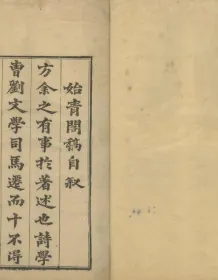 始青閣稿自敘
方余之有事於著述也詩學
曹劉文學司馬遷而十不得